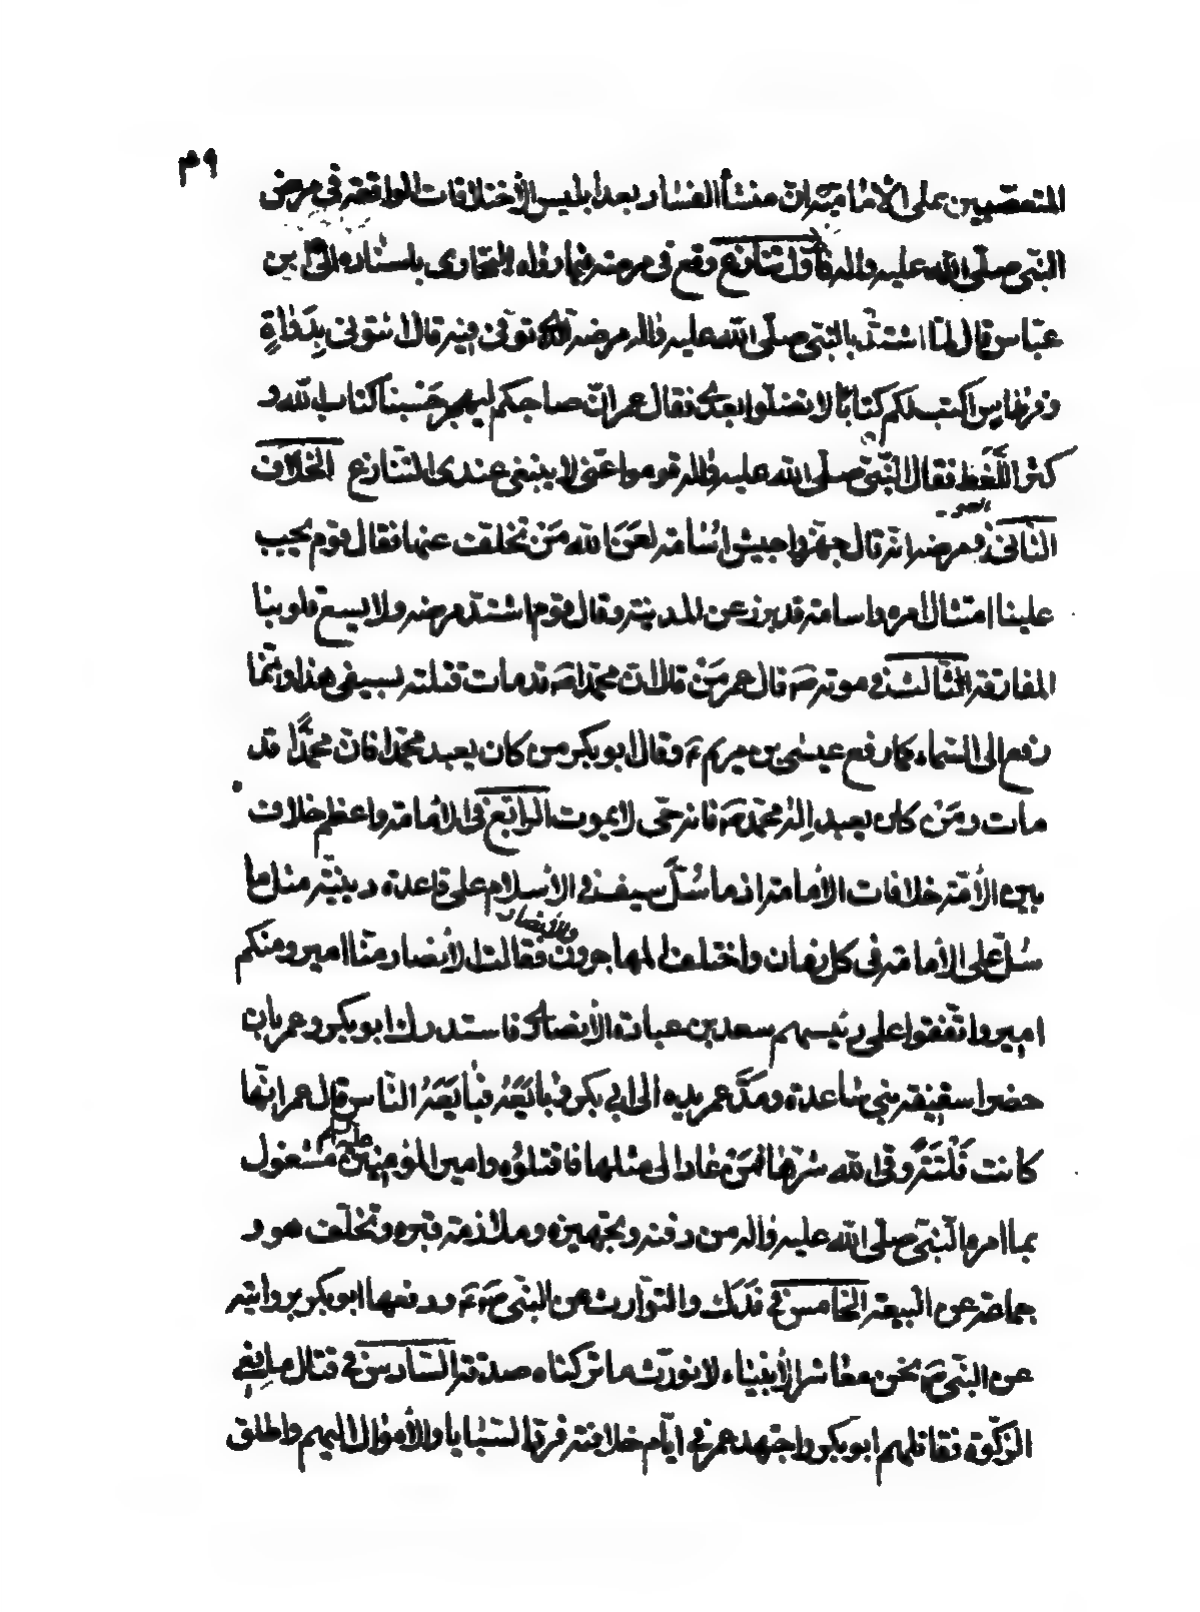 ٣٩
المتعصبين على الأمامية ان منشأ الفساد بعد ابليس الأختلافات الواقعة في مرض
النبي صلّى الله عليه واله فأول تنازع وقع في مرضه فيما رواه البخارى باسناده الى ابن
عبّاس قال لمّا اشتدّ بالنبي صلّى الله عليه واله مرضه الذى توفى فيه قال ائتونى بدَواةٍ
وقرطاس اكتب لكم كتابًا لا تضلّوا بعدى فقال عمر انّ صاحبكم ليهجر حَسْبنا كتاب الله و
كثر اللَّغَط فقال النّبي صلّى الله عليه واله قوموا عنّى لا ينبغى عندى التنازع الخلاف
الثانى في مرضه انه قال جهّزوا جيش اسامة لعَنَ الله مَنْ تخلف عنها فقال قوم يجب
علينا امتثال امره واسامة قد برز عن المدينة وقال قوم اشتدّ مرضه ولا يسع قلوبنا
المفارقة الثالث في موته ص قال عمر مَنْ قال ان محمّدا ص قد مات قتلته بسيفى هذا وانّما
رفع الى السّماء كما رفع عيسى بن مريم ع وقال ابو بكر من كان يعبد محمّدا فان محمّدًا قد
مات ومَنْ كان يعبد اله محمّد ص فانه حىّ لا يموت الرّابع في الامامة واعظم خلاف
بين الأمّة خلاف الأمامة اذ ما سُلَّ سيف في الأسلام على قاعدة دينيّة مثل ما
سُلّ على الأمامة في كل زمان واختلف المهاجرون والأنصار فقالت الأنصار منّا امير ومنكم
امير واتّفقوا على رئيسهم سعد بن عبادة الأنصارى فاستدرك ابو بكر وعمر بان
حضرا سقيفة بني ساعدة ومدَّ عمر يده الى ابي بكر فبايَعَهُ فبايَعَهُ النّاس قال عمر انّها
كانت فَلْتَةً وقى الله شرّها فمَنْ عاد الى مثلها فاقتلوه وامير المؤمنين عليه السلام مشغول
بما امره النّبي صلّى الله عليه واله من دفنه وتجهيزه وملازمة قبره وتخلّف هو و
جماعة عن البيعة الخامس في فَدَك والتوارث عن النبّى ص ودفعها ابو بكر بروايته
عن النبّى ص نحن معاشر الأنبياء لا نورّث ما تركناه صدقة السّادس في قتال مانِعي
الزكوة فقاتلهم ابو بكر واجتهد عمر في ايّام خلافته فردّ السّبايا والأموال اليهم واطلق